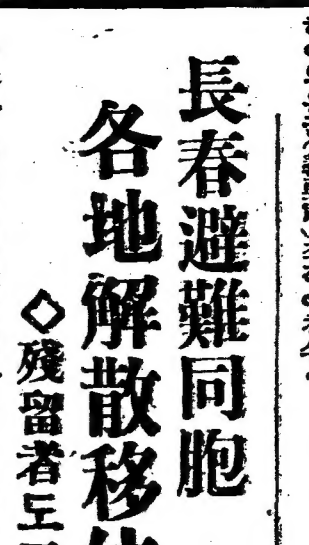 長春避難同胞
各地解散移
◇殘留者도